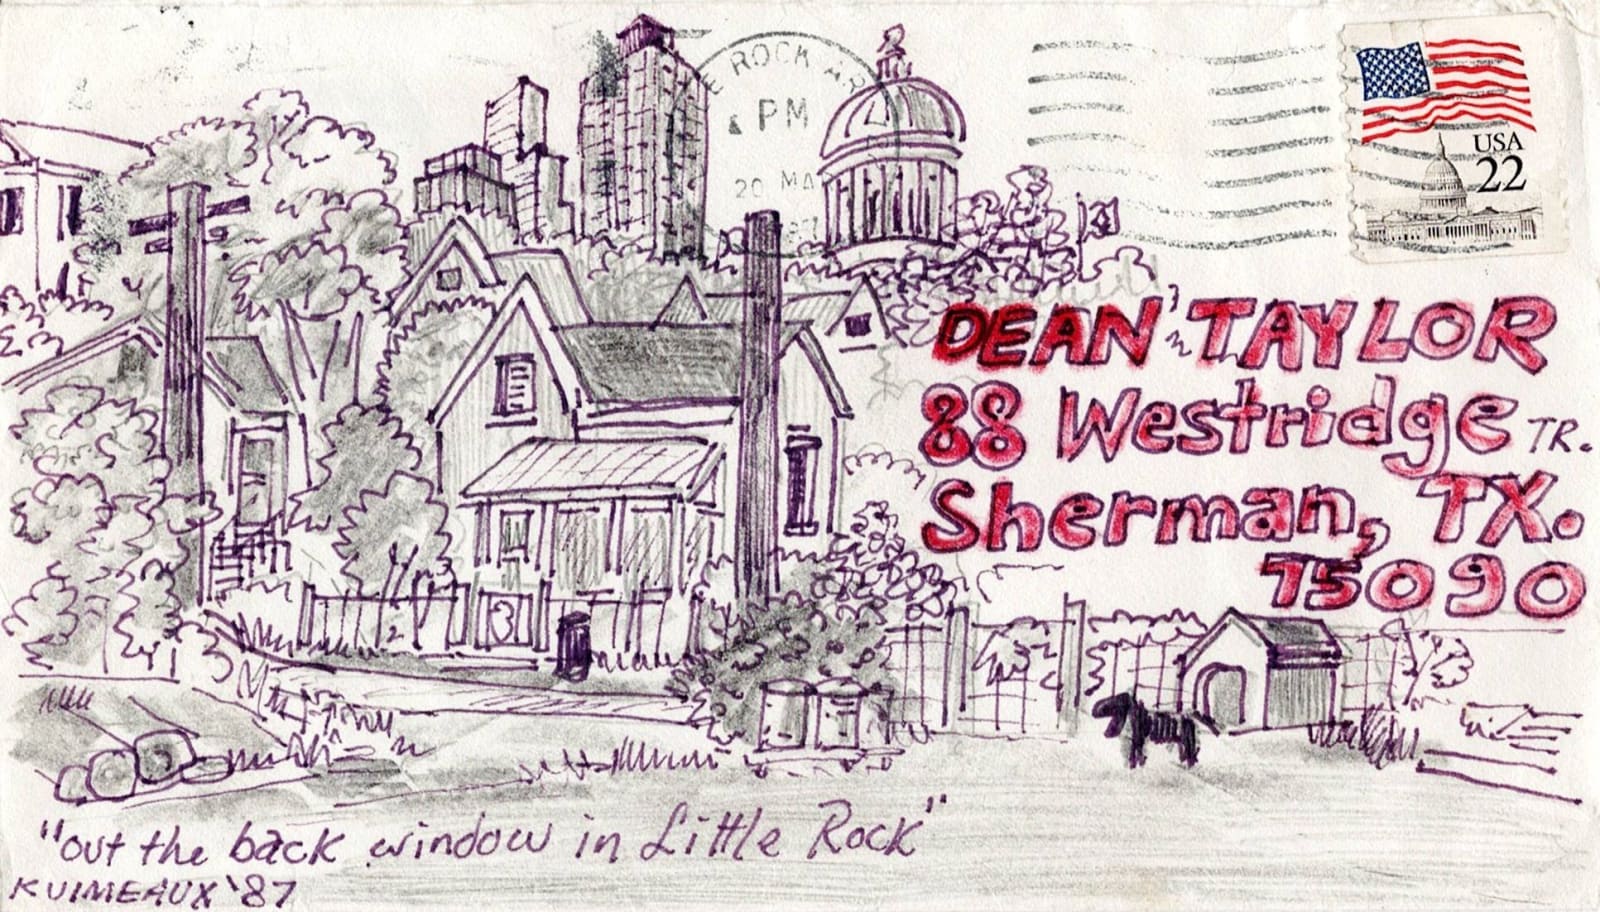 E ROCK AR
PM
20 MA
USA
22
DEAN TAYLOR
88 Westridge TR.
Sherman, TX.
75090
"out the back window in Little Rock"
KUIMEAUX '87